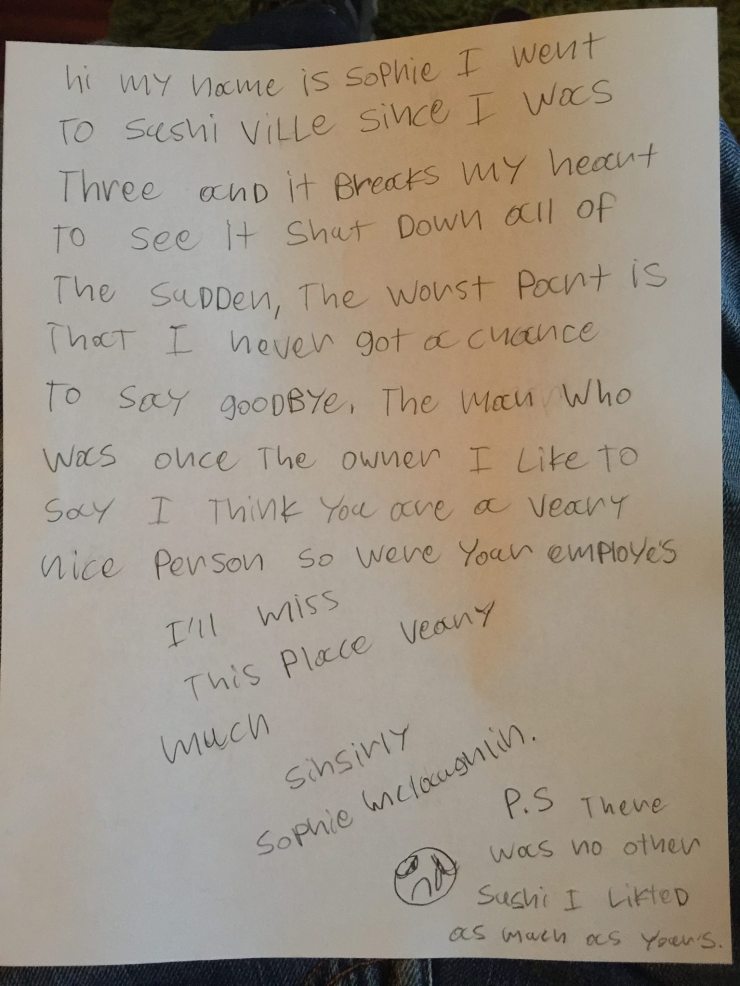 hi my name is Sophie I went
To Sushi ville since I was
Three and it Breaks my heart
To see It Shut Down all of
The SuDDen, The Worst Part is
That I never got a chance
To Say gooDBye. The man Who
Was once The owner I Like To
Say I Think You are a veary
nice Person so were Your employe's
I'll miss
This Place veany
much
Sinsirly
Sophie Mclaughlin.
P.S There
was no other
Sushi I LikteD
as much as Your's.